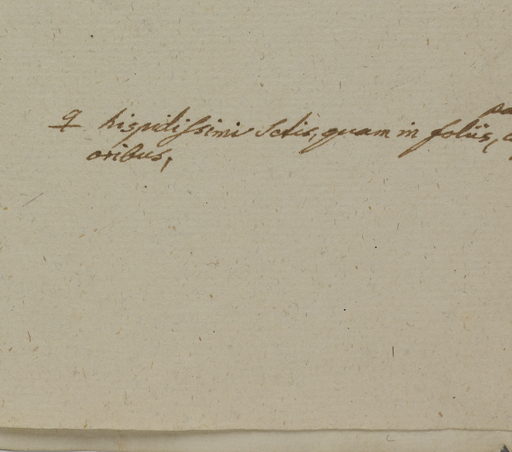 pa
q hispidissimi setis, quam in foliis, c
oribus,